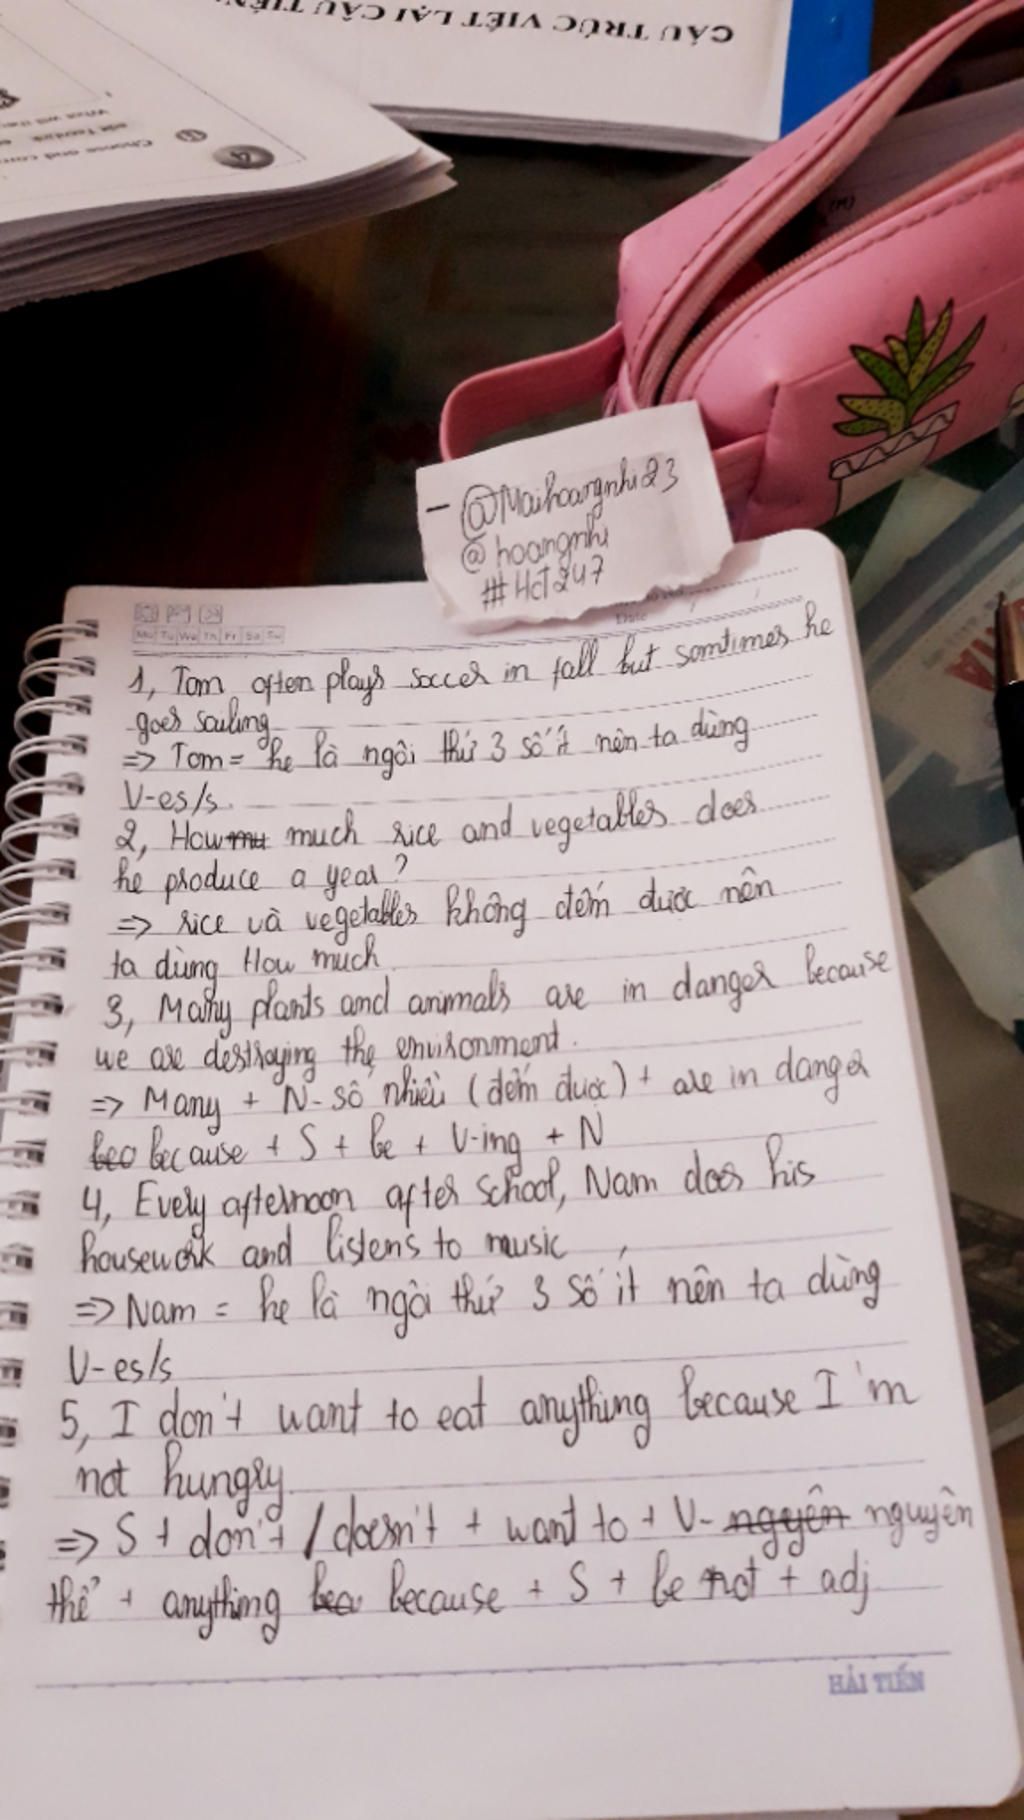 CẤU TRÚC VIẾT LẠI CÂU TIẾN
4
Choose and
What will the
- @Maihoangnhi23
@hoangnhi
#Hct247
Mo Tu We Th Fr Sa Su
Date
1, Tom often plays soccer in fall but somtimes he
goes sailing
=> Tom = he là ngôi thứ 3 số ít nên ta dùng
V-es/s.
2, How much rice and vegetables does
he produce a year?
=> rice và vegetables không đếm được nên
ta dùng How much
3, Many plants and animals are in danger because
we are destroying the environment.
=> Many + N-số nhiều (đếm được) + are in danger
because + S + be + V-ing + N
4, Every afternoon after school, Nam does his
housework and listens to music
=> Nam = he là ngôi thứ 3 số ít nên ta dùng
V-es/s
5, I don't want to eat anything because I'm
not hungry
=> S + don't / doesn't + want to + V- nguyên
thể + anything because + S + be not + adj
HẢI TIẾN